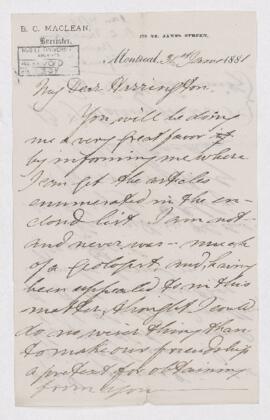 B. C. MACLEAN,
Barrister.
ST. JAMES STREET,
Montreal, June 1881
My Dear Harrington.
You will be doing
me a very great favor if
by informing me where
I can get the articles
enumerated in the en-
closed list. I am not -
and never was - much
of a Geologist, and, having
been appealed to in this
matter, thought I could
do no wiser thing than
to make our friendship
a pretext for obtaining
from you